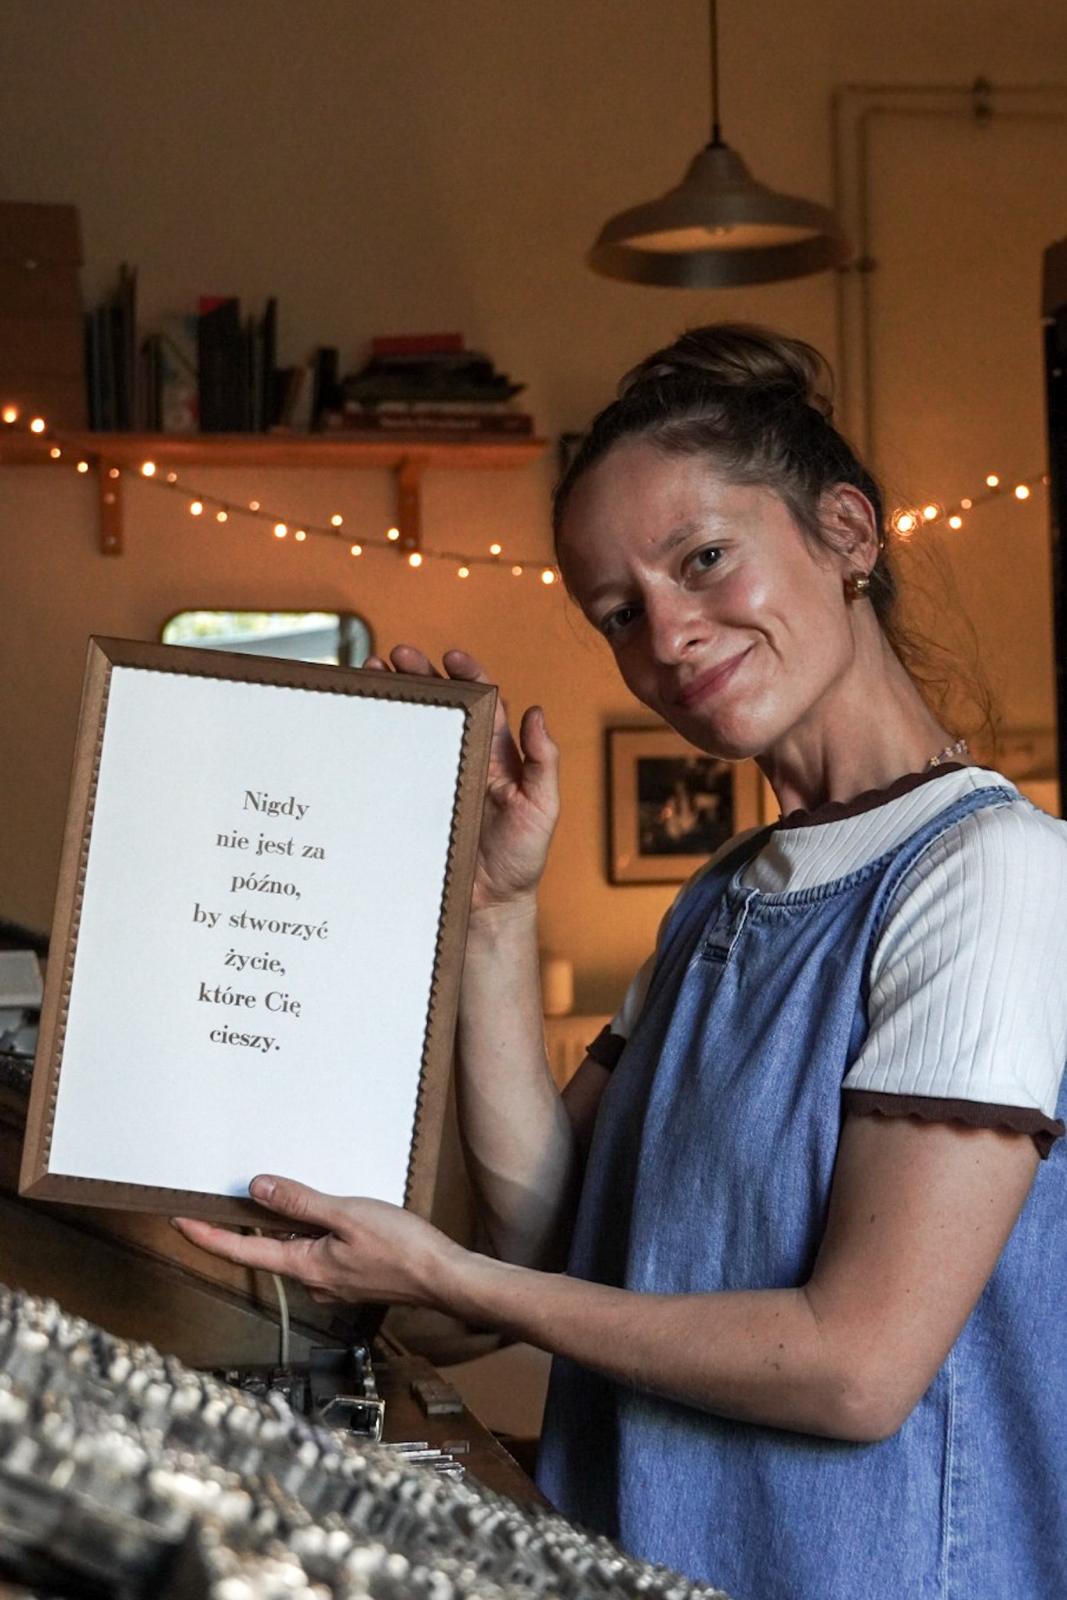 Nigdy
nie jest za
późno,
by stworzyć
życie,
które Cię
cieszy.